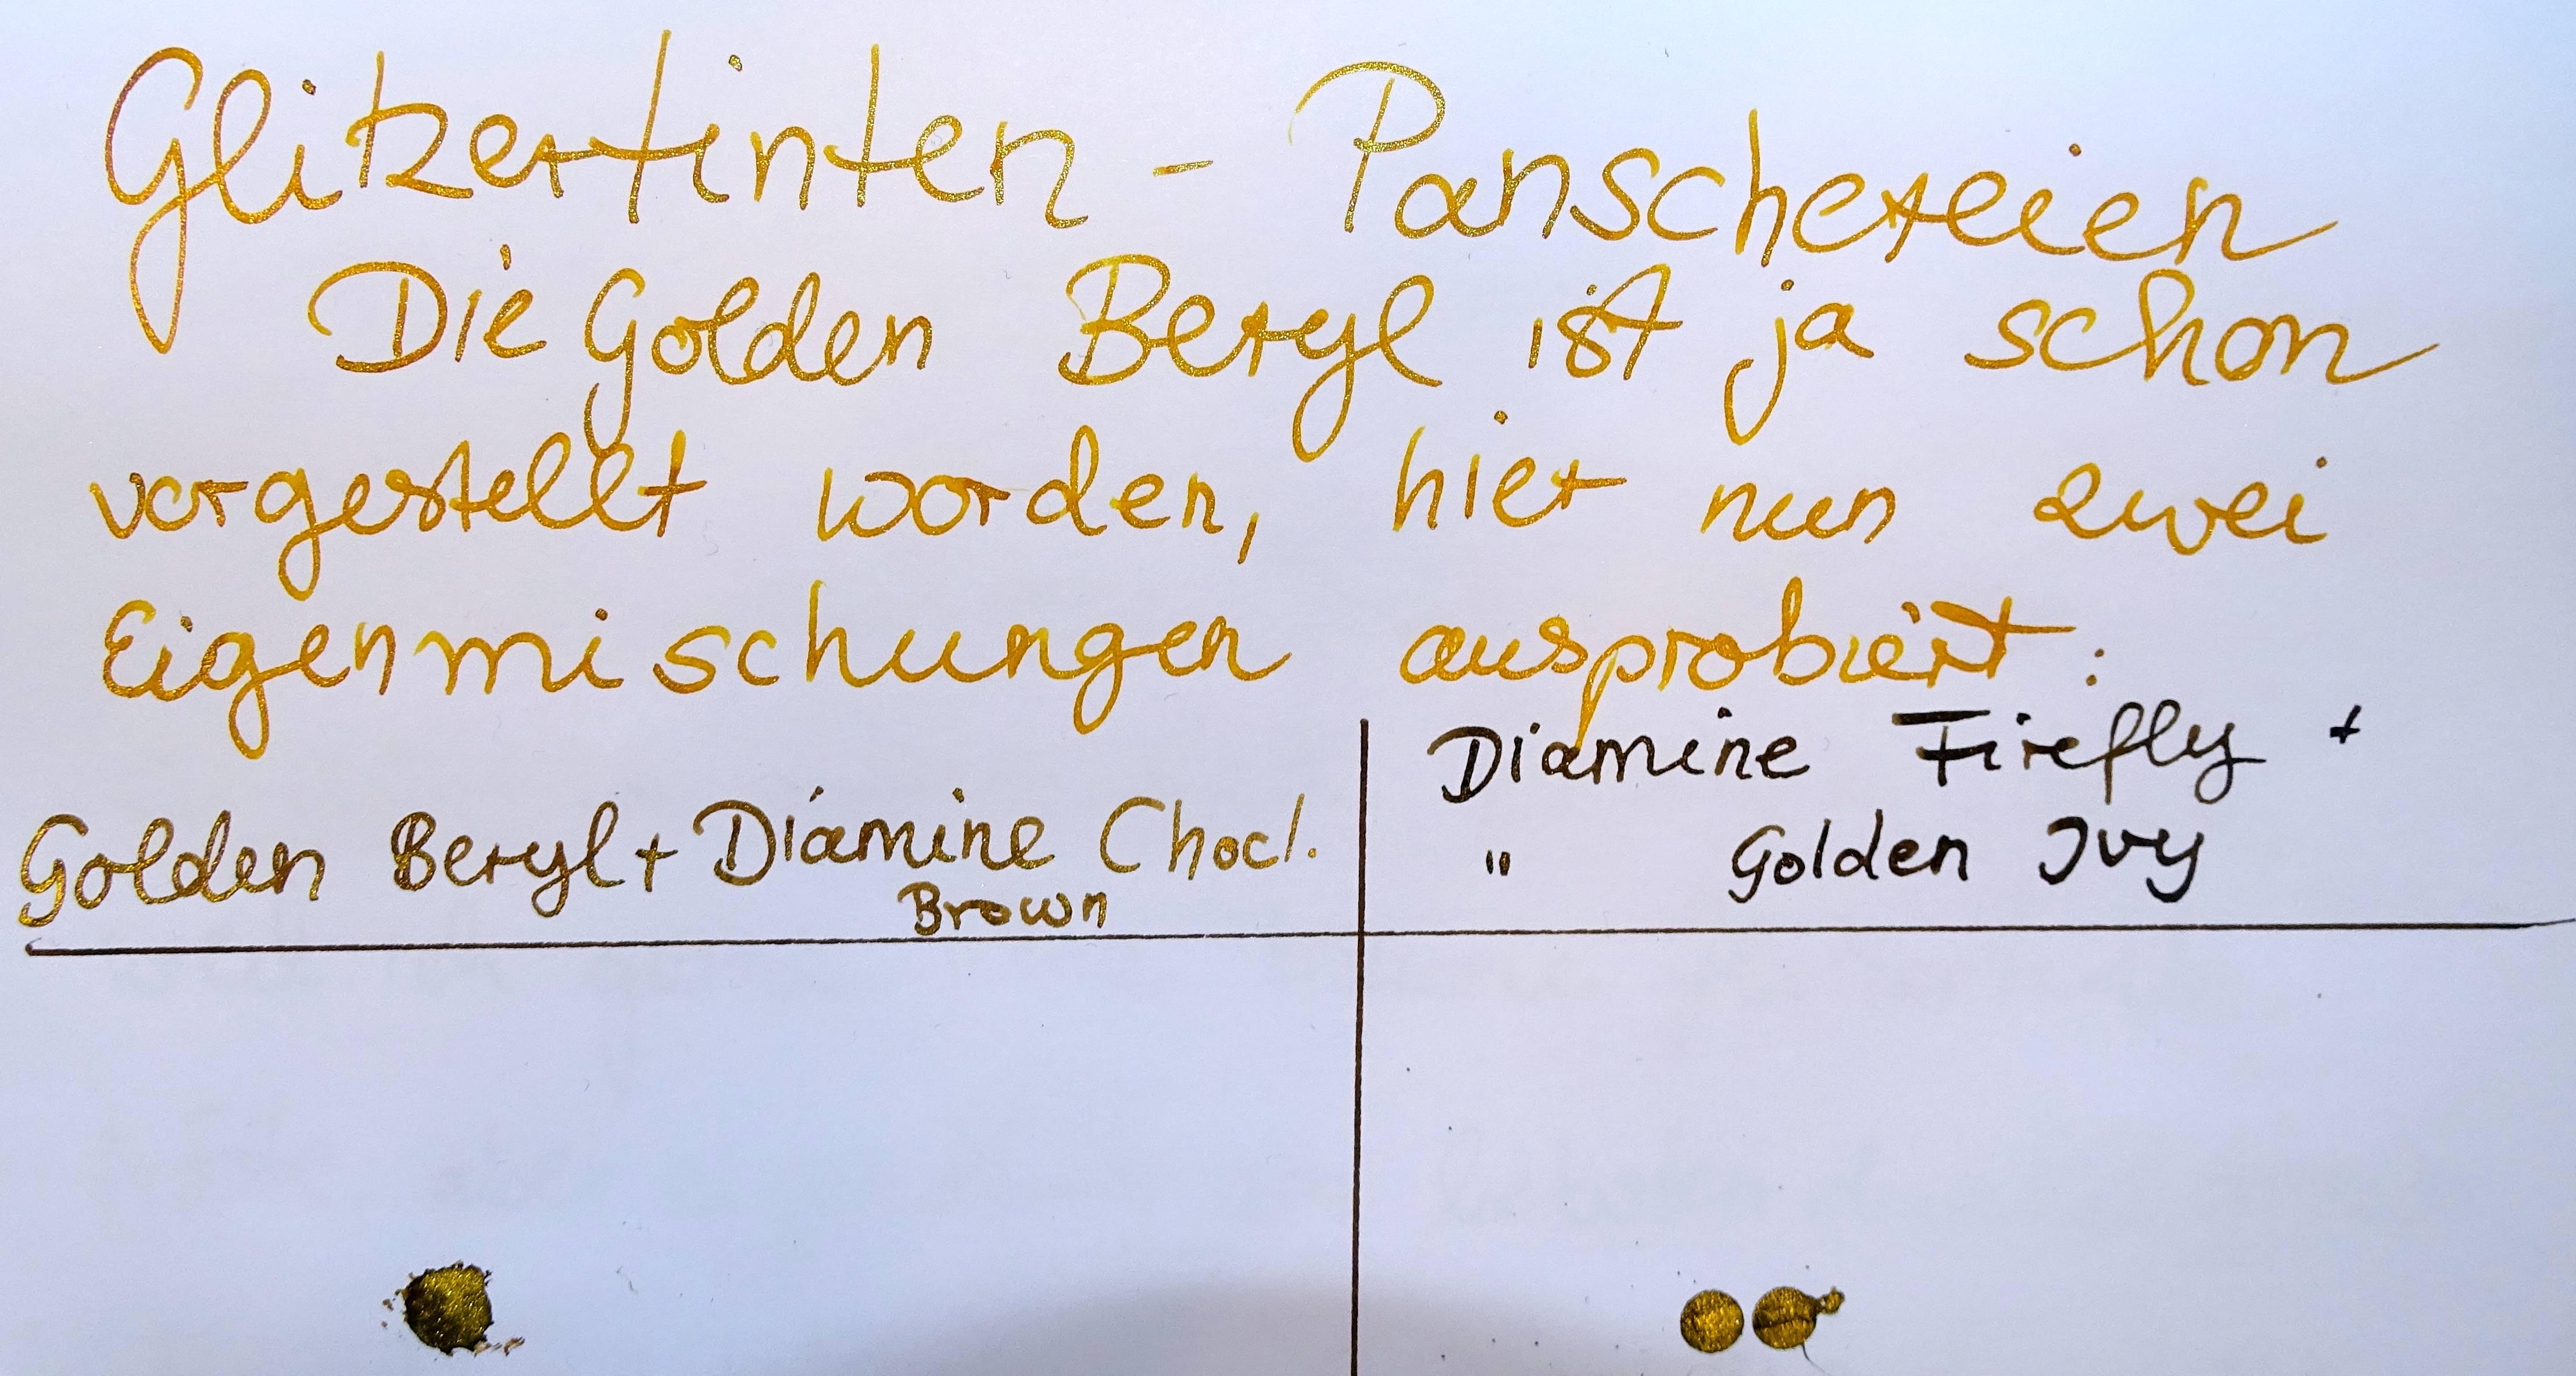 Glitzertinten - Panschereien
Die Golden Beryl ist ja schon
vorgestellt worden, hier nun zwei
Eigenmischungen ausprobiert:
Golden Beryl + Diamine Chocl.
Brown
Diamine Firefly +
" Golden Ivy